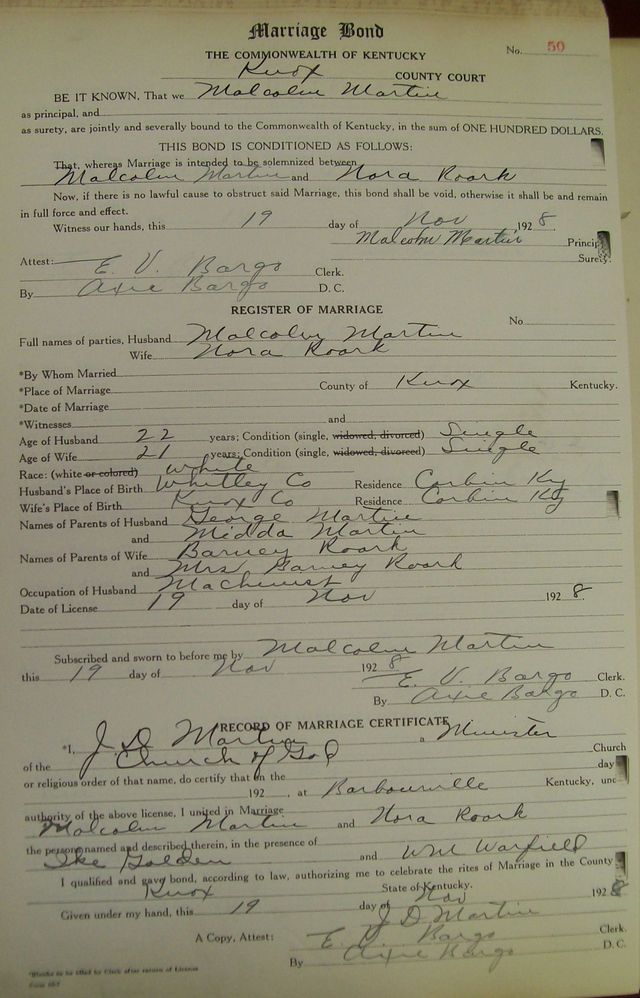 Marriage Bond
THE COMMONWEALTH OF KENTUCKY No. 50
Knox COUNTY COURT
BE IT KNOWN, That we Malcolm Martin
as principal, and
as surety, are jointly and severally bound to the Commonwealth of Kentucky, in the sum of ONE HUNDRED DOLLARS.
THIS BOND IS CONDITIONED AS FOLLOWS:
That, whereas Marriage is intended to be solemnized between
Malcolm Martin and Nora Roark
Now, if there is no lawful cause to obstruct said Marriage, this bond shall be void, otherwise it shall be and remain
in full force and effect.
Witness our hands, this 19 day of Nov 1928.
Malcolm Martin Princip
Surety.
Attest: E. V. Bargo Clerk.
By Axie Bargo D. C.
REGISTER OF MARRIAGE
No.
Full names of parties, Husband Malcolm Martin
Wife Nora Roark
*By Whom Married
*Place of Marriage County of Knox Kentucky.
*Date of Marriage
*Witnesses and
Age of Husband 22 years; Condition (single, widowed, divorced) Single
Age of Wife 21 years; Condition (single, widowed, divorced) Single
Race: (white or colored) white
Husband's Place of Birth Whitley Co Residence Corbin Ky
Wife's Place of Birth Knox Co Residence Corbin Ky
Names of Parents of Husband George Martin
and Midda Martin
Names of Parents of Wife Barney Roark
and Mrs Barney Roark
Occupation of Husband Machinist
Date of License 19 day of Nov 1928.
Subscribed and sworn to before me by Malcolm Martin
this 19 day of Nov 1928
E. V. Bargo Clerk.
By Axie Bargo D. C.
RECORD OF MARRIAGE CERTIFICATE
*I, J. D. Martin a Minister
of the Church of God Church
or religious order of that name, do certify that on the day
192 , at Barbourville Kentucky, und
authority of the above license, I united in Marriage
Malcolm Martin and Nora Roark
the persons named and described therein, in the presence of
Ike Golden and Wm Warfield
I qualified and gave bond, according to law, authorizing me to celebrate the rites of Marriage in the County
Knox State of Kentucky.
Given under my hand, this 19 day of Nov 1928
J D Martin
A Copy, Attest: E. V. Bargo C.
By Axie Bargo D.C.
*Blanks to be filled by Clerk after return of License